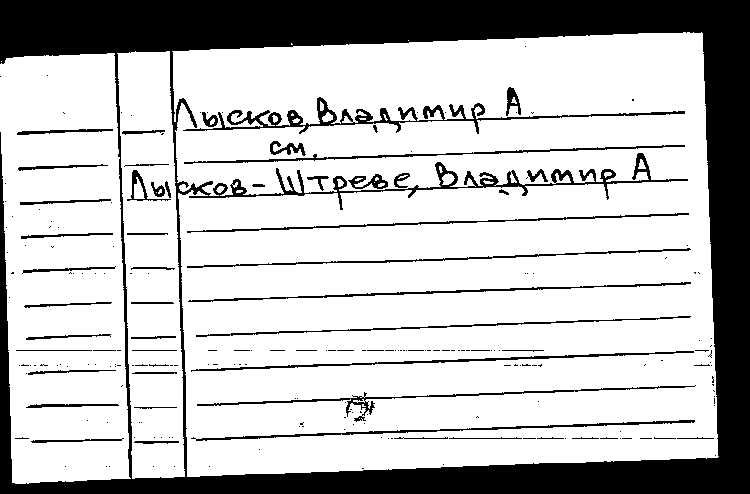 Лысков, Владимир А
см.
Лысков-Штреве, Владимир А